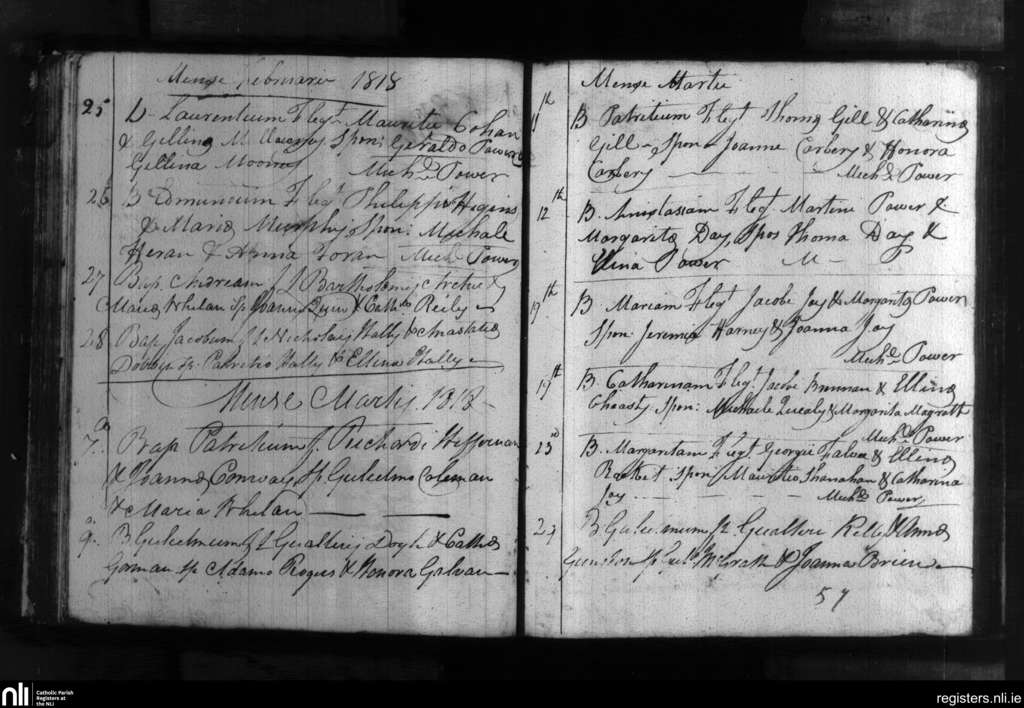 Mense Februarii 1818
25 B Laurentium F legt Mauritii Cohan
& Ellina Spon: Geraldo Power &
Ellina Moore Michl Power
26 B Edmundum F legt Philippi Higins
& Maria Murphy Spon: Michale
Heran & Anna Foran Michl Power
27 Bap. Andream f l Bartholomey &
Maria Whelan Sp Joanne & Cath Reily
28 Bap Jacobum f l Nicholay Hally &
sp. Patritio Hally & Ellena Hally
Mense Martij 1818
7 Bap Patritium f Richardi Heffernan
& Joanna Conway Sp Gulielmo Coleman
& Maria Whelan
9 B Gulielmum f l Gualterij Doyle & Catha
Gorman sp Adamo Rogers & Honora Galvan
Mense Martii
11th B Patritium F legt Thoma Gill & Catharina
Gill Spon Joanne Corbery & Honora
Corbery Michl Power
12th B. Anastasiam F legt Martini Power &
Margarita Day, Spos Thoma Day &
Elina Power M
19th B Mariam F legt Jacobi Joy & Margarita Power
Spon: Jeremia Harney & Joanna Joy
Michl Power
19th B. Catharinam F legt. Jacobi Brennan & Ellina
Cheasty Spon: Michaele Quealy & Margarita Magrath
Michl Power
23d B. Margaritam F legt Georgii & Ellina
Rocket Spon: Mauritio Shanahan & Catharina
Joy Michl Power
B Gulielmum fl Gualteri Kelly & Anna
sp Gul McGrath & Joanna Brien
57
nli
Catholic Parish
Registers at
the NLI
registers.nli.ie